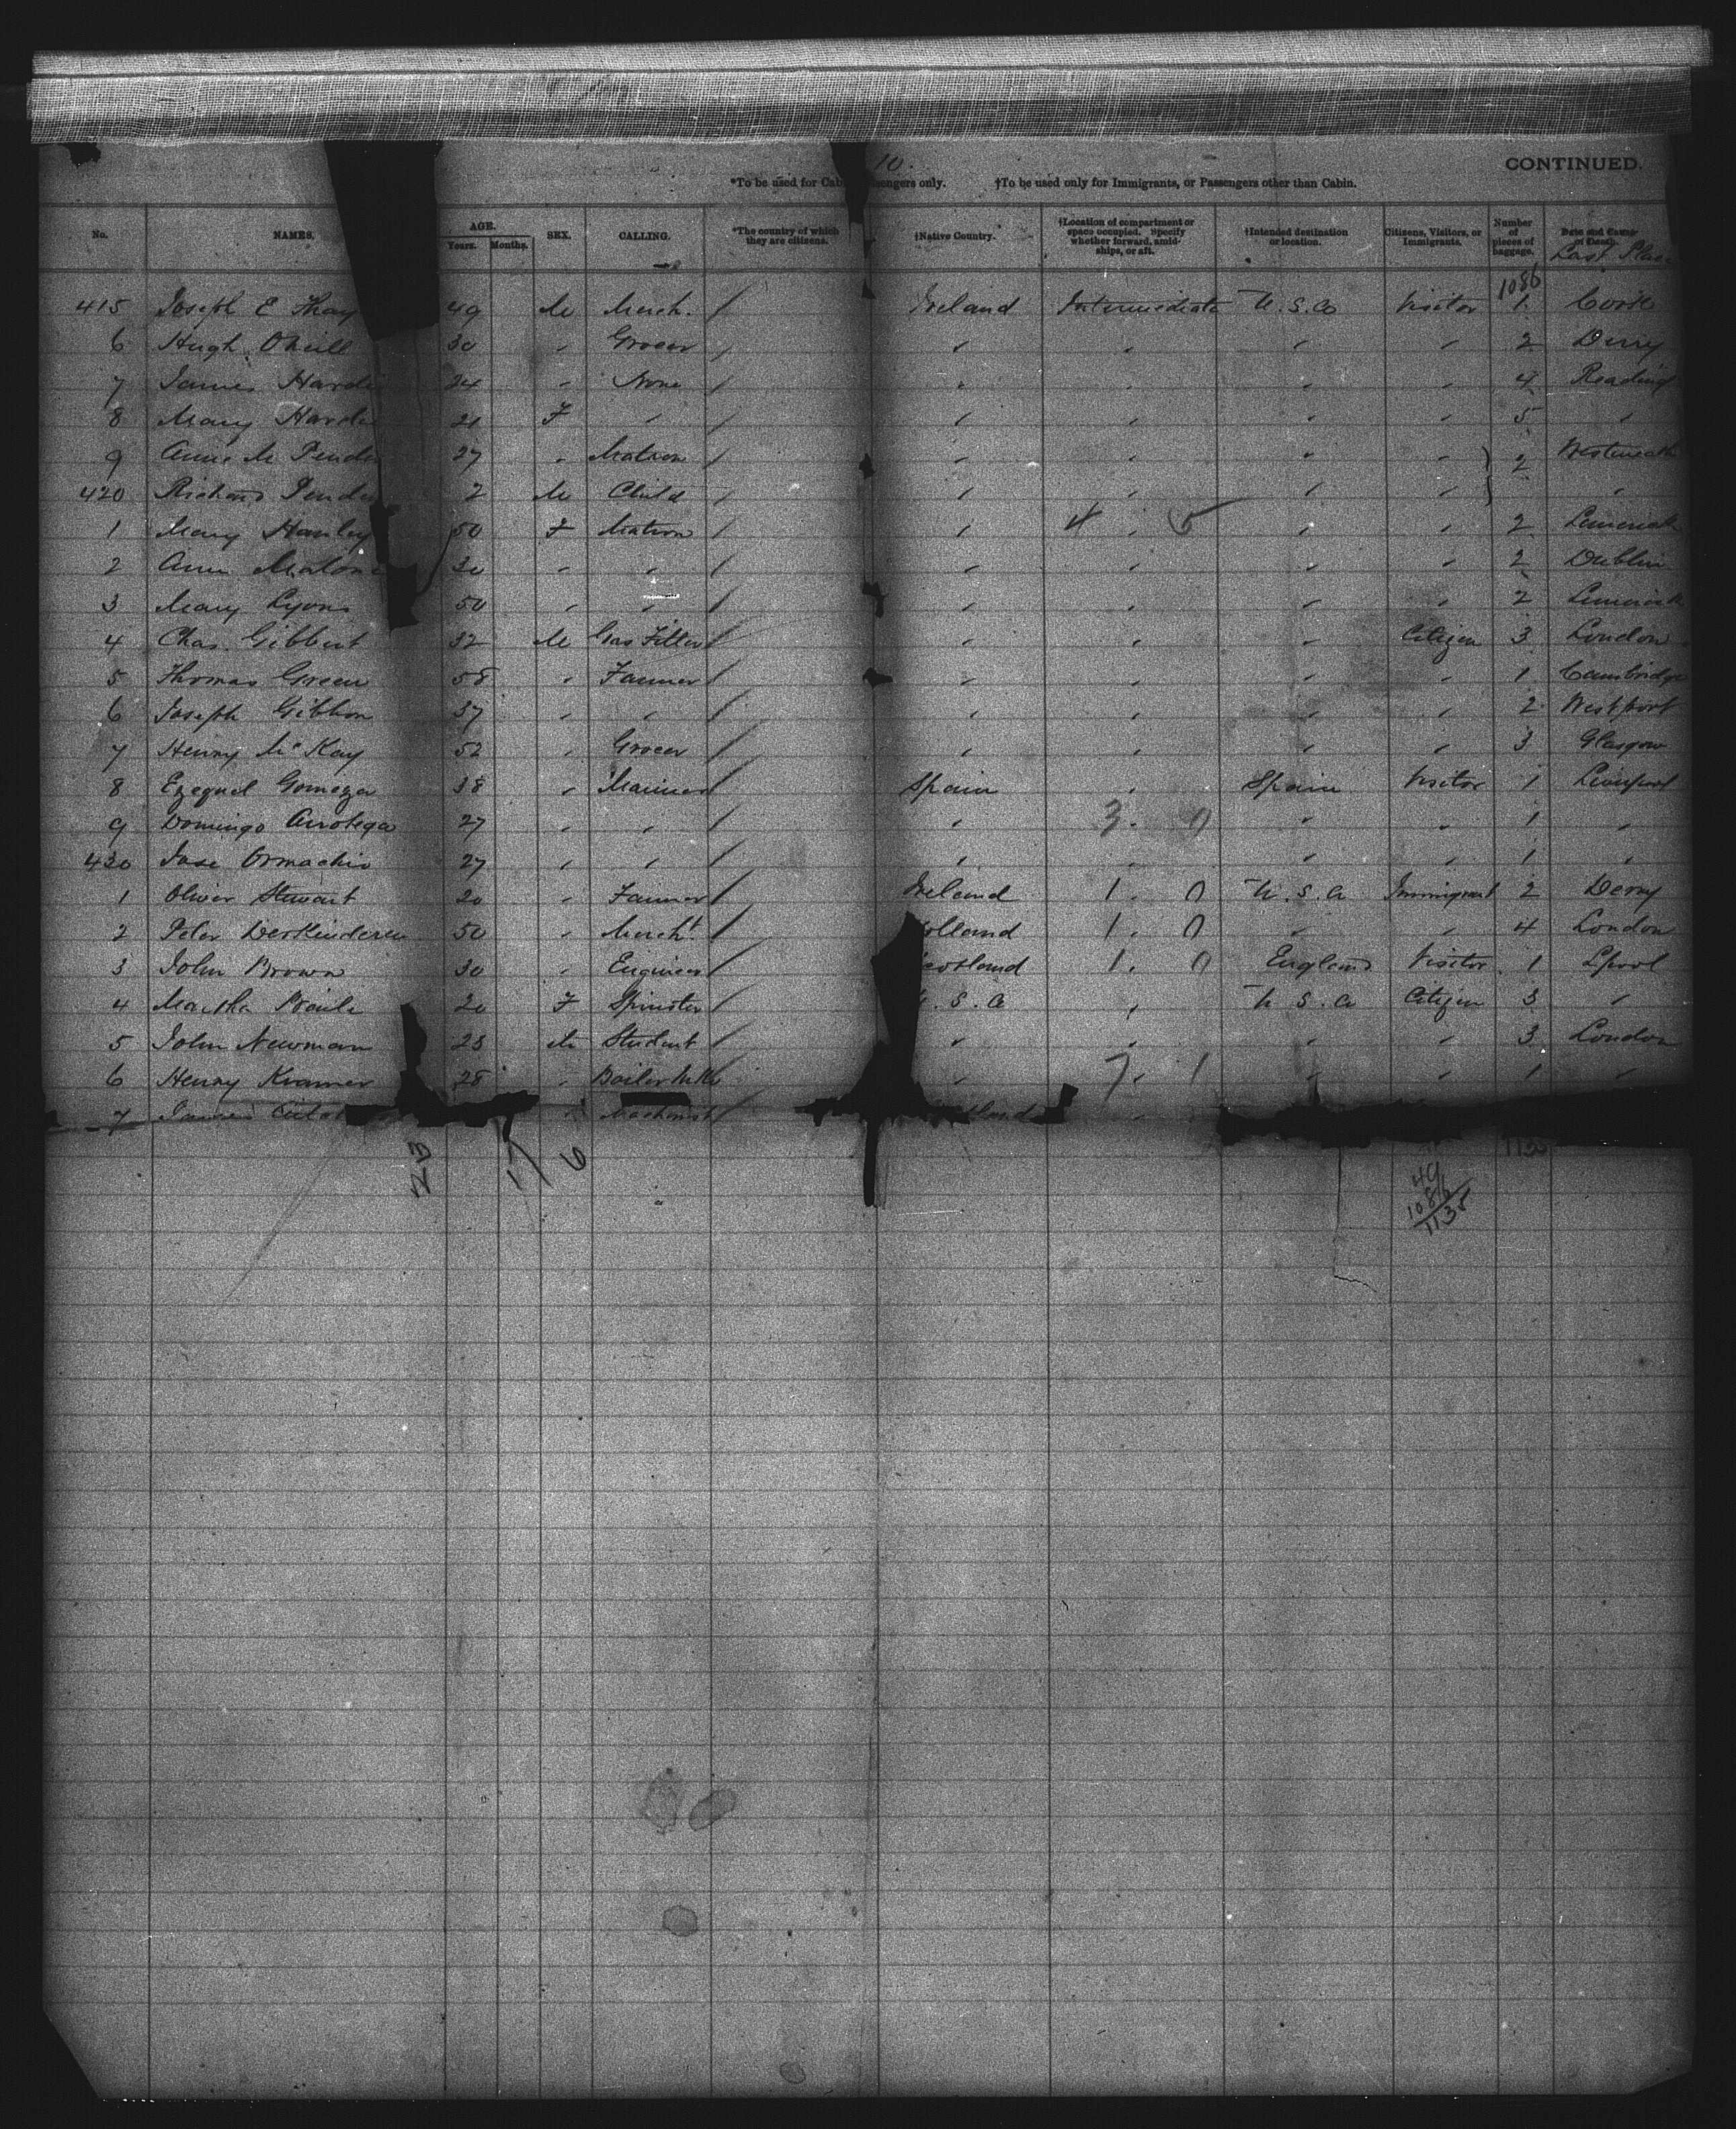 10.
CONTINUED.
*To be used for Cab ngers only. †To be used only for Immigrants, or Passengers other than Cabin.
No. NAMES. AGE. Years. Months. SEX. CALLING. *The country of which they are citizens. †Native Country. †Location of compartment or space occupied. Specify whether forward, amidships, or aft. †Intended destination or location. Citizens, Visitors, or Immigrants. Number of pieces of baggage. Date and Cause of Death. Last Place
1086
415 Joseph E 49 M Merch. / Ireland Intermediate U.S.A Visitor 1 Cork
6 Hugh Oneill 30 " Grocer / " " " " 2 Derry
7 James Hardi 24 " None / " " " " 4 Reading
8 Mary Hardi 21 F " / " " " " 5 "
9 Annie M Pende 27 " Matron / " " " " } 2 Westmeath
420 Richard Pende 2 M Child / " " " " } "
1 Mary Hanley 50 F Matron / " 4 " 5 " " 2 Limerick
2 Ann Malone 30 " " / " " " " 2 Dublin
3 Mary Lyons 50 " " / " " " " 2 Limerick
4 Chas. Gibbert 32 M Gas Fitter / " " " Citizen 3 London
5 Thomas Green 58 " Farmer / " " " " 1 Cambridge
6 Joseph Gibbon 37 " " / " " " " 2 Westport
7 Henry McKay 52 " Grocer / " " " " 3 Glasgow
8 Ezequel 38 " Mariner / Spain " Spain Visitor 1 Liverpool
9 Domingo 27 " " / " 3 " 0 " " 1 "
430 Jose 27 " " / " " " " 1 "
1 Oliver Stewart 20 " Farmer / Ireland 1 " 0 U.S.A Immigrant 2 Derry
2 Peter DerKinderen 50 " Mercht. / olland 1 " 0 " " 4 London
3 John Brown 30 " Engineer / cotland 1 " 0 England Visitor 1 Lpool
4 Martha 20 F Spinster / .S.A " U.S.A Citizen 3 "
5 John Newman 23 M Student / " " " " 3 London
6 Henry Kramer 28 " Boiler Mkr / " 7 " 1 " " 1 "
7 James " Machinist / land "
23 17 6
49
1086
1135